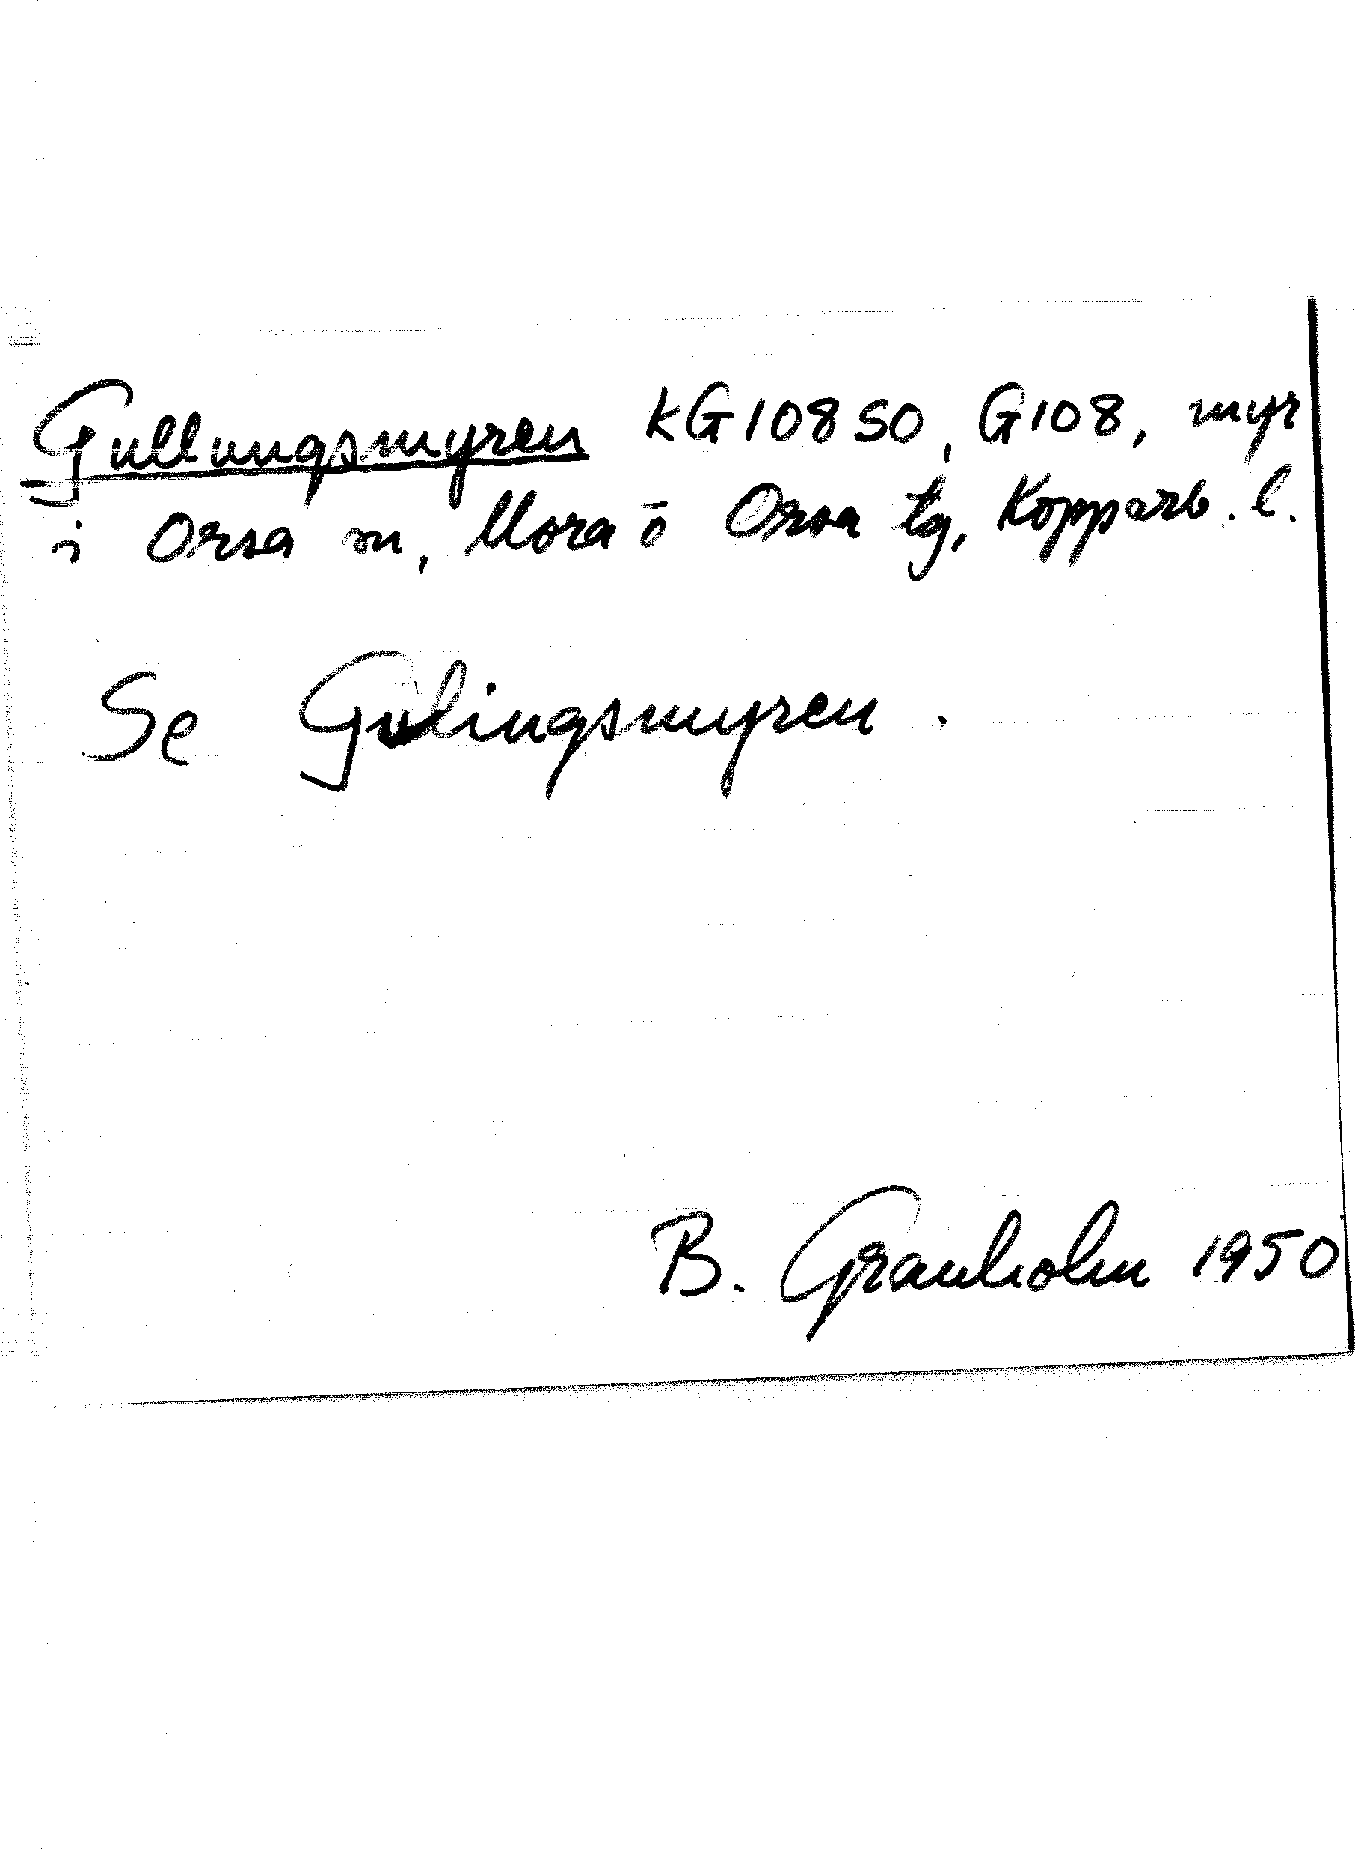 Gullungsmyren KG108SO, G108, myr
i Orsa sn, Mora o Orsa tg, Kopparb. l.
Se Gulingsmyren.
B. Granholm 1950